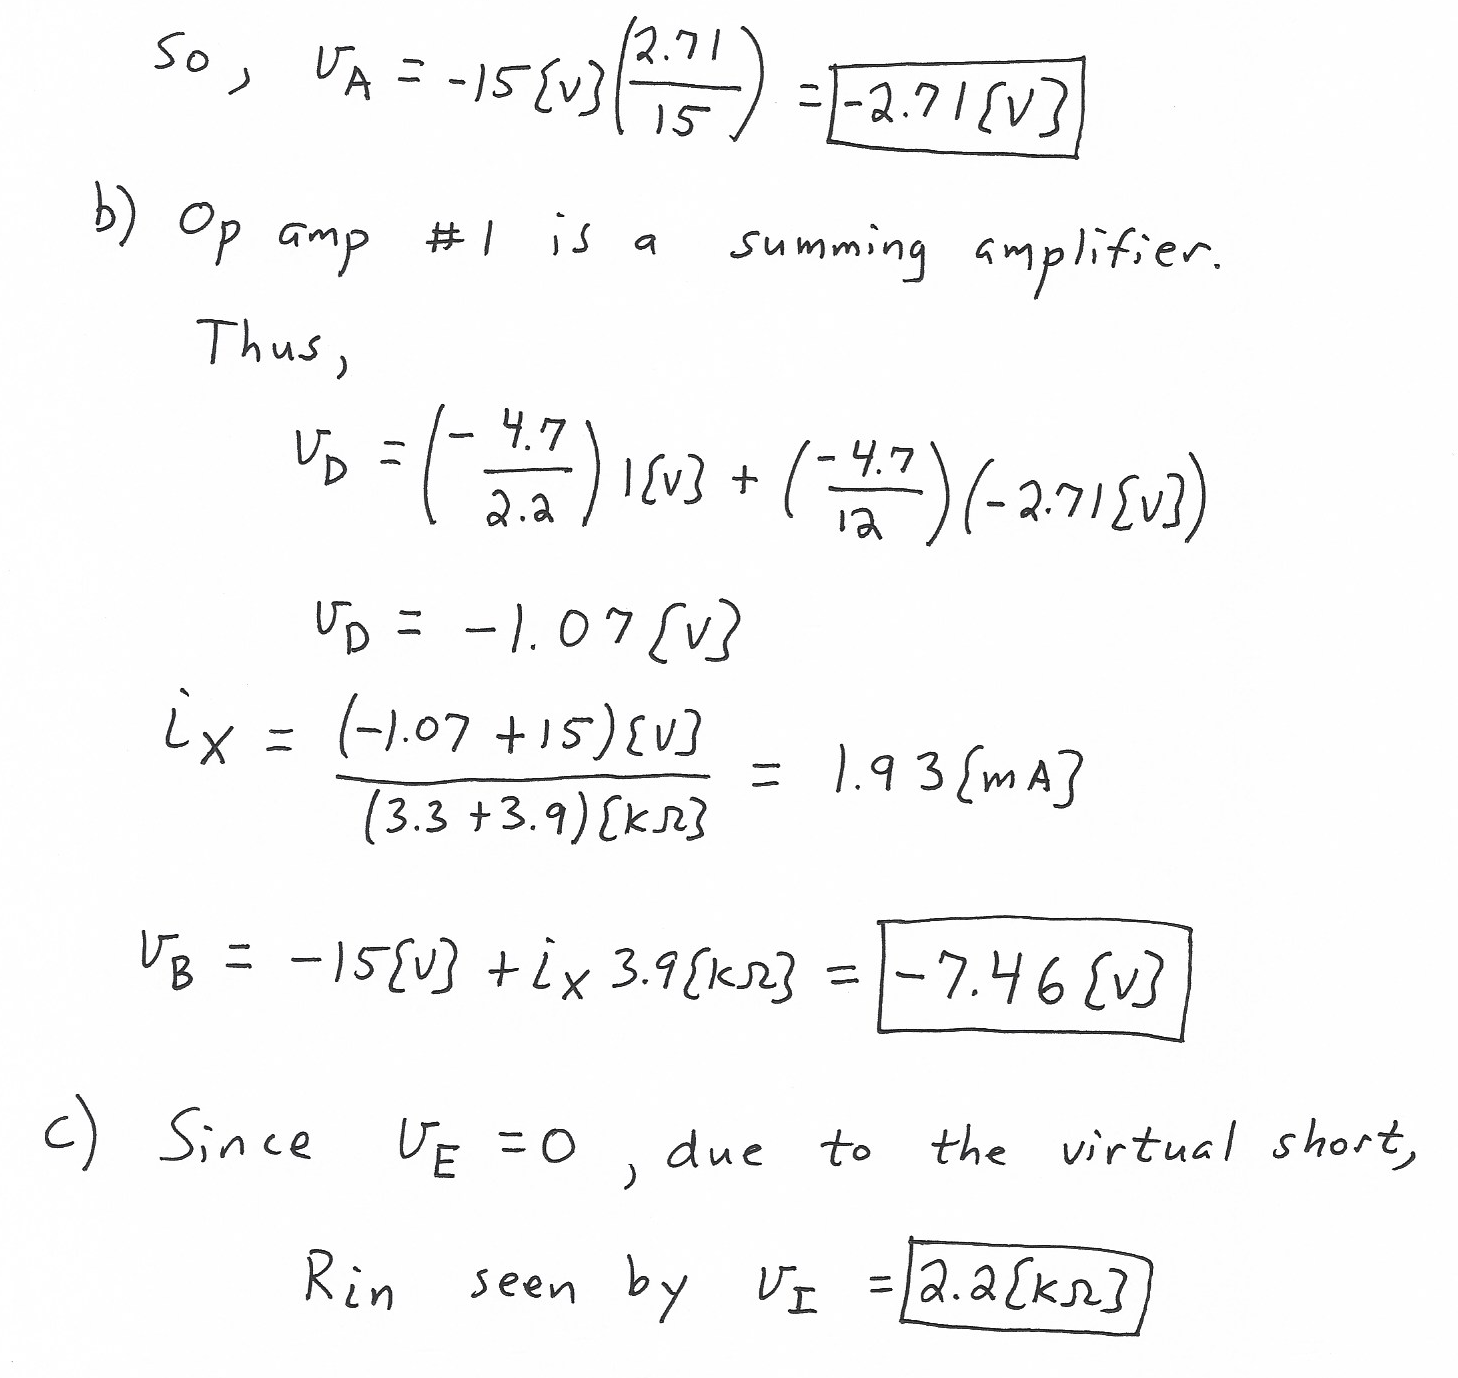 So, v_A = -15{V}(2.71/15) = -2.71{V}
b) Op amp #1 is a summing amplifier.
Thus,
v_D = (-4.7/2.2) 1{V} + (-4.7/12)(-2.71{V})
v_D = -1.07{V}
i_X = (-1.07 + 15){V}/(3.3 + 3.9){kΩ} = 1.93{mA}
v_B = -15{V} + i_X 3.9{kΩ} = -7.46{V}
c) Since v_E = 0, due to the virtual short,
Rin seen by v_I = 2.2{kΩ}